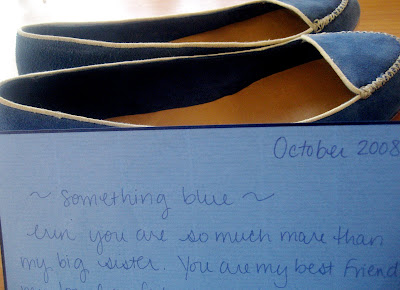 October 2008
~ something blue ~
erin you are so much more than
my big sister. You are my best friend